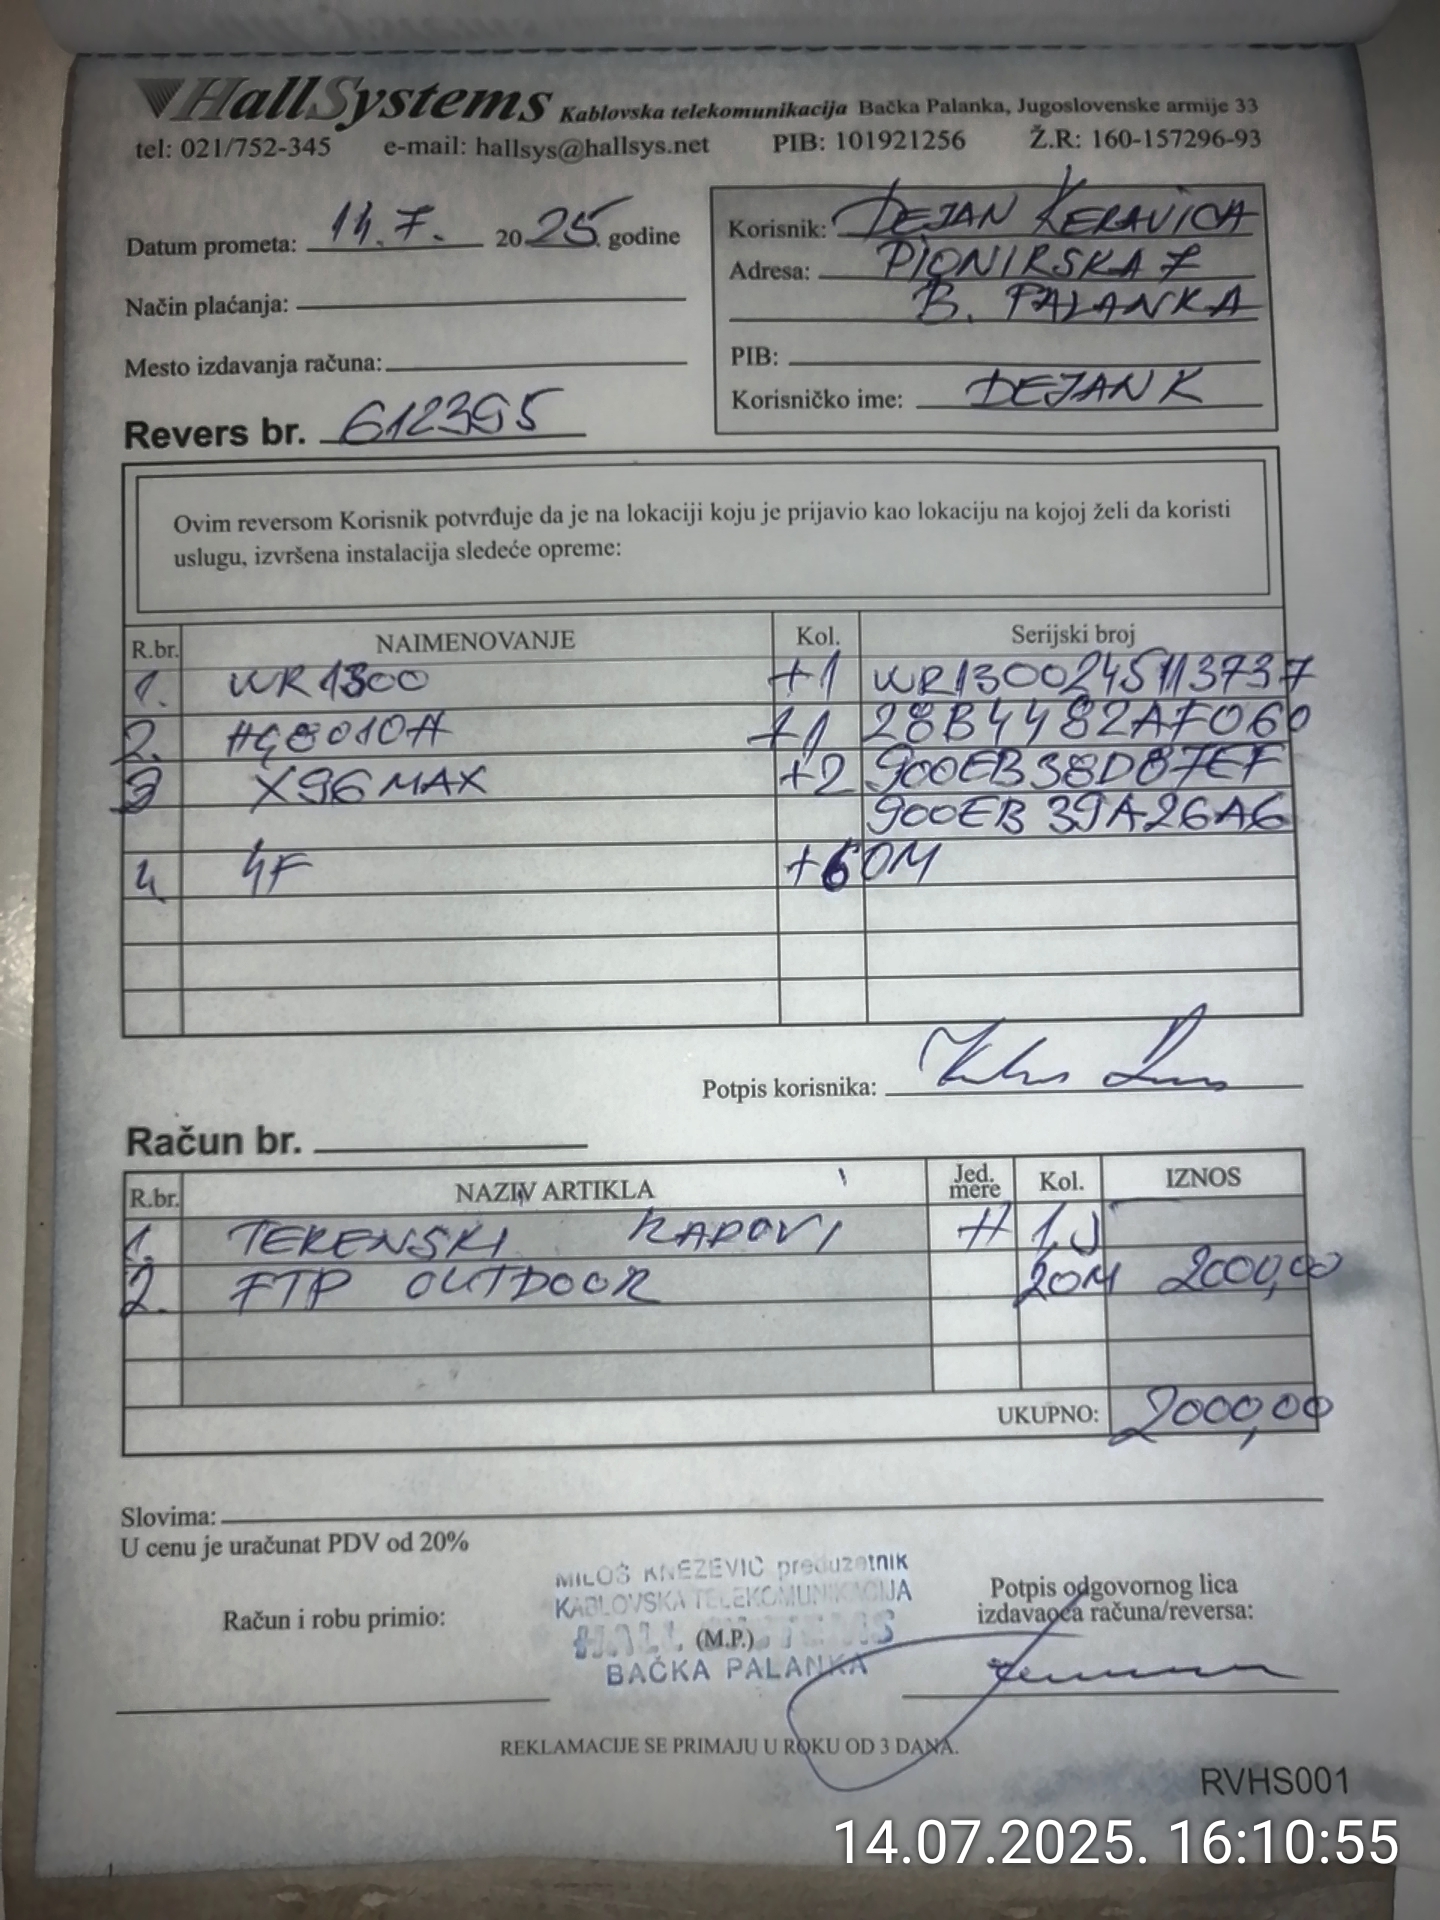 HallSystems Kablovska telekomunikacija Bačka Palanka, Jugoslovenske armije 33
tel: 021/752-345 e-mail: hallsys@hallsys.net PIB: 101921256 Ž.R: 160-157296-93
Datum prometa: 14.7. 2025. godine
Način plaćanja:
Mesto izdavanja računa:
Revers br. 612395
Korisnik: DEJAN KERAVICA
Adresa: PIONIRSKA 7
B. PALANKA
PIB:
Korisničko ime: DEJANK
Ovim reversom Korisnik potvrđuje da je na lokaciji koju je prijavio kao lokaciju na kojoj želi da koristi
uslugu, izvršena instalacija sledeće opreme:
R.br. NAIMENOVANJE Kol. Serijski broj
1. WR1300 +1 WR1300245113737
2. HG8010H +1 28B4482AF060
3 X96MAX +2 900EB38D87EF
900EB39A26A6
4 4F +60M
Potpis korisnika:
Račun br.
R.br. NAZIV ARTIKLA Jed. mere Kol. IZNOS
1. TERENSKI RADOVI H
2. FTP OUTDOOR 20M 2000,00
UKUPNO: 2000,00
Slovima:
U cenu je uračunat PDV od 20%
MILOŠ KNEŽEVIĆ preduzetnik
KABLOVSKA TELEKOMUNIKACIJA
HALL SYSTEMS
(M.P.)
BAČKA PALANKA
Račun i robu primio:
Potpis odgovornog lica
izdavaoca računa/reversa:
REKLAMACIJE SE PRIMAJU U ROKU OD 3 DANA.
RVHS001
14.07.2025. 16:10:55